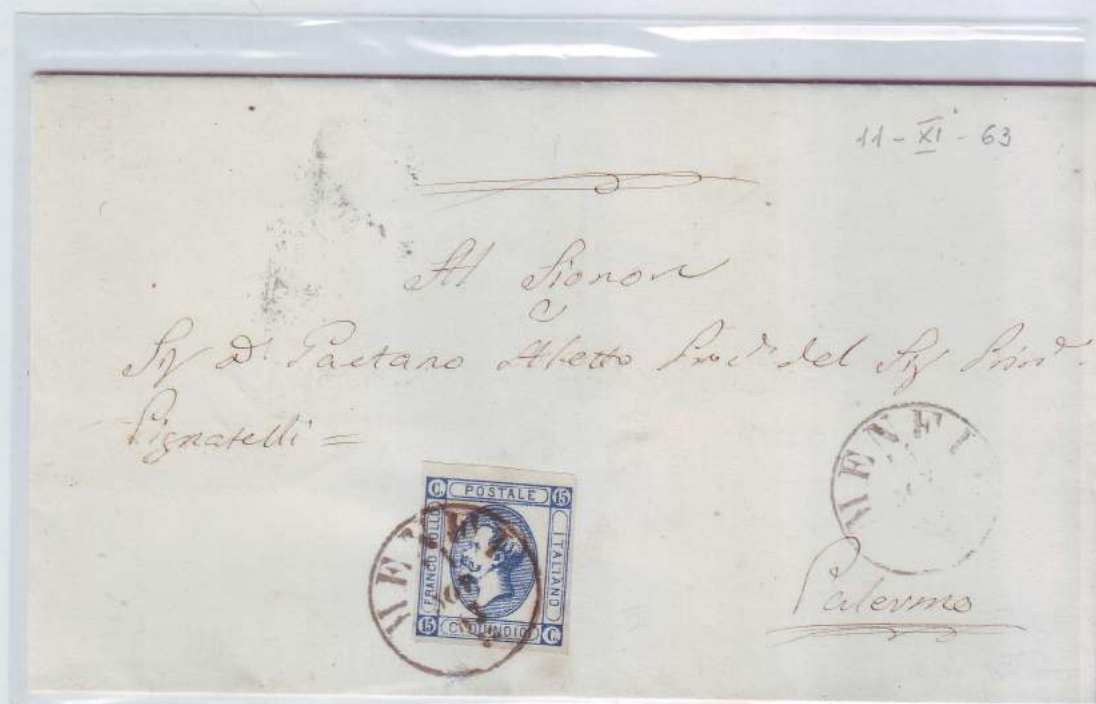 11-XI-63
Al Signor
Sig D. Gaetano del Sig
Pignatelli =
MENFI
Palermo
C. POSTALE 15
FRANCO BOLLO
ITALIANO
15 C. QUINDICI C.
MENFI